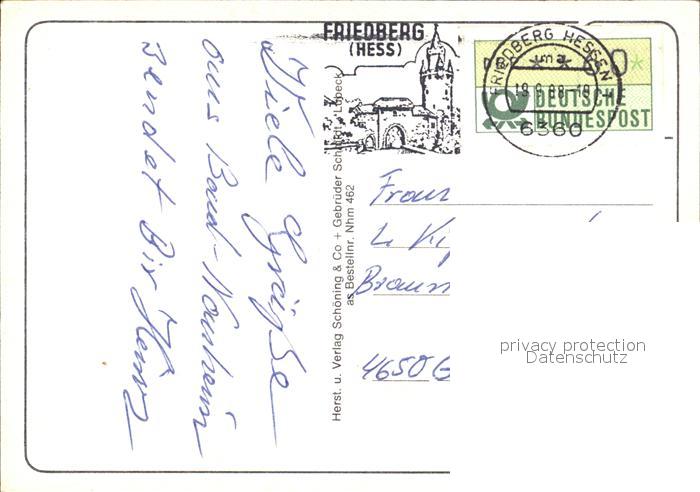 FRIEDBERG
(HESS)
FRIEDBERG HESSEN
ma
18.9.88-18
6360
DEUTSCHE
BUNDESPOST
Viele Grüße
aus Bad-Nauheim
sendet Dir Heinz
Herst. u. Verlag Schöning & Co + Gebrüder Schmidt, Lübeck
as Bestellnr. Nhm 462
Frau
L. Ki
Braun
4650 G
privacy protection
Datenschutz